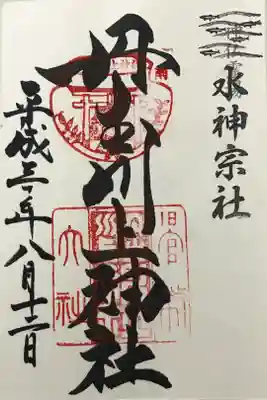 水神宗社
丹生川上神社
平成三十年八月十二日
旧官幣
大社